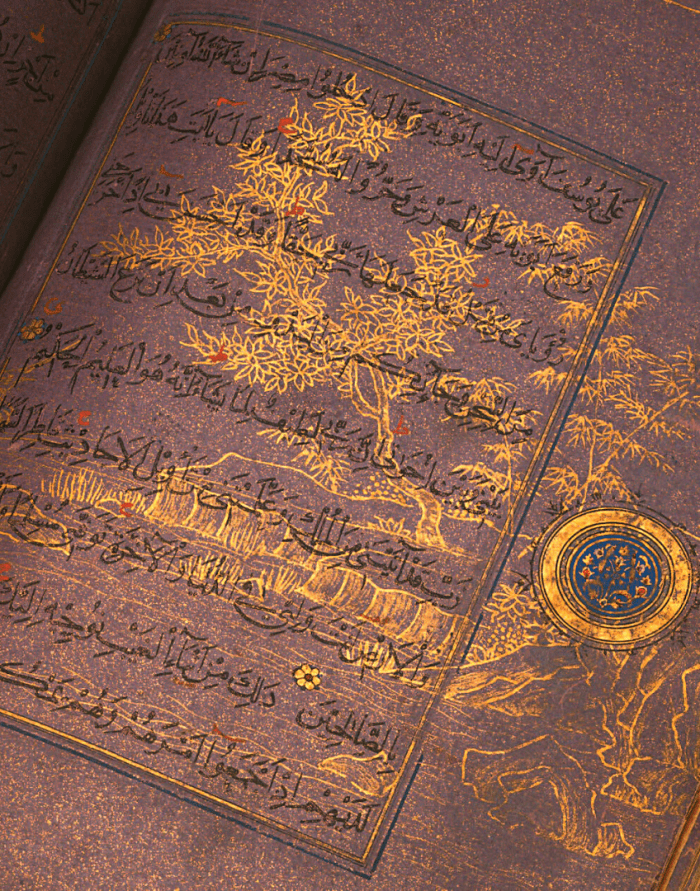 عَلَى يُوسُفَ آوَى إِلَيْهِ أَبَوَيْهِ وَقَالَ ادْخُلُوا مِصْرَ إِنْ شَاءَ اللَّهُ آمِنِينَ
وَرَفَعَ أَبَوَيْهِ عَلَى الْعَرْشِ وَخَرُّوا لَهُ سُجَّدًا وَقَالَ يَا أَبَتِ هَذَا تَأْوِيلُ
رُؤْيَايَ مِنْ قَبْلُ قَدْ جَعَلَهَا رَبِّي حَقًّا وَقَدْ أَحْسَنَ بِي إِذْ أَخْرَجَنِي
مِنَ السِّجْنِ وَجَاءَ بِكُمْ مِنَ الْبَدْوِ مِنْ بَعْدِ أَنْ نَزَغَ الشَّيْطَانُ
بَيْنِي وَبَيْنَ إِخْوَتِي إِنَّ رَبِّي لَطِيفٌ لِمَا يَشَاءُ إِنَّهُ هُوَ الْعَلِيمُ الْحَكِيمُ
رَبِّ قَدْ آتَيْتَنِي مِنَ الْمُلْكِ وَعَلَّمْتَنِي مِنْ تَأْوِيلِ الْأَحَادِيثِ فَاطِرَ
وَالْأَرْضِ أَنْتَ وَلِيِّي فِي الدُّنْيَا وَالْآخِرَةِ تَوَفَّنِي مُسْلِمًا
بِالصَّالِحِينَ ذَلِكَ مِنْ أَنْبَاءِ الْغَيْبِ نُوحِيهِ إِلَيْكَ
لَدَيْهِمْ إِذْ أَجْمَعُوا أَمْرَهُمْ وَهُمْ